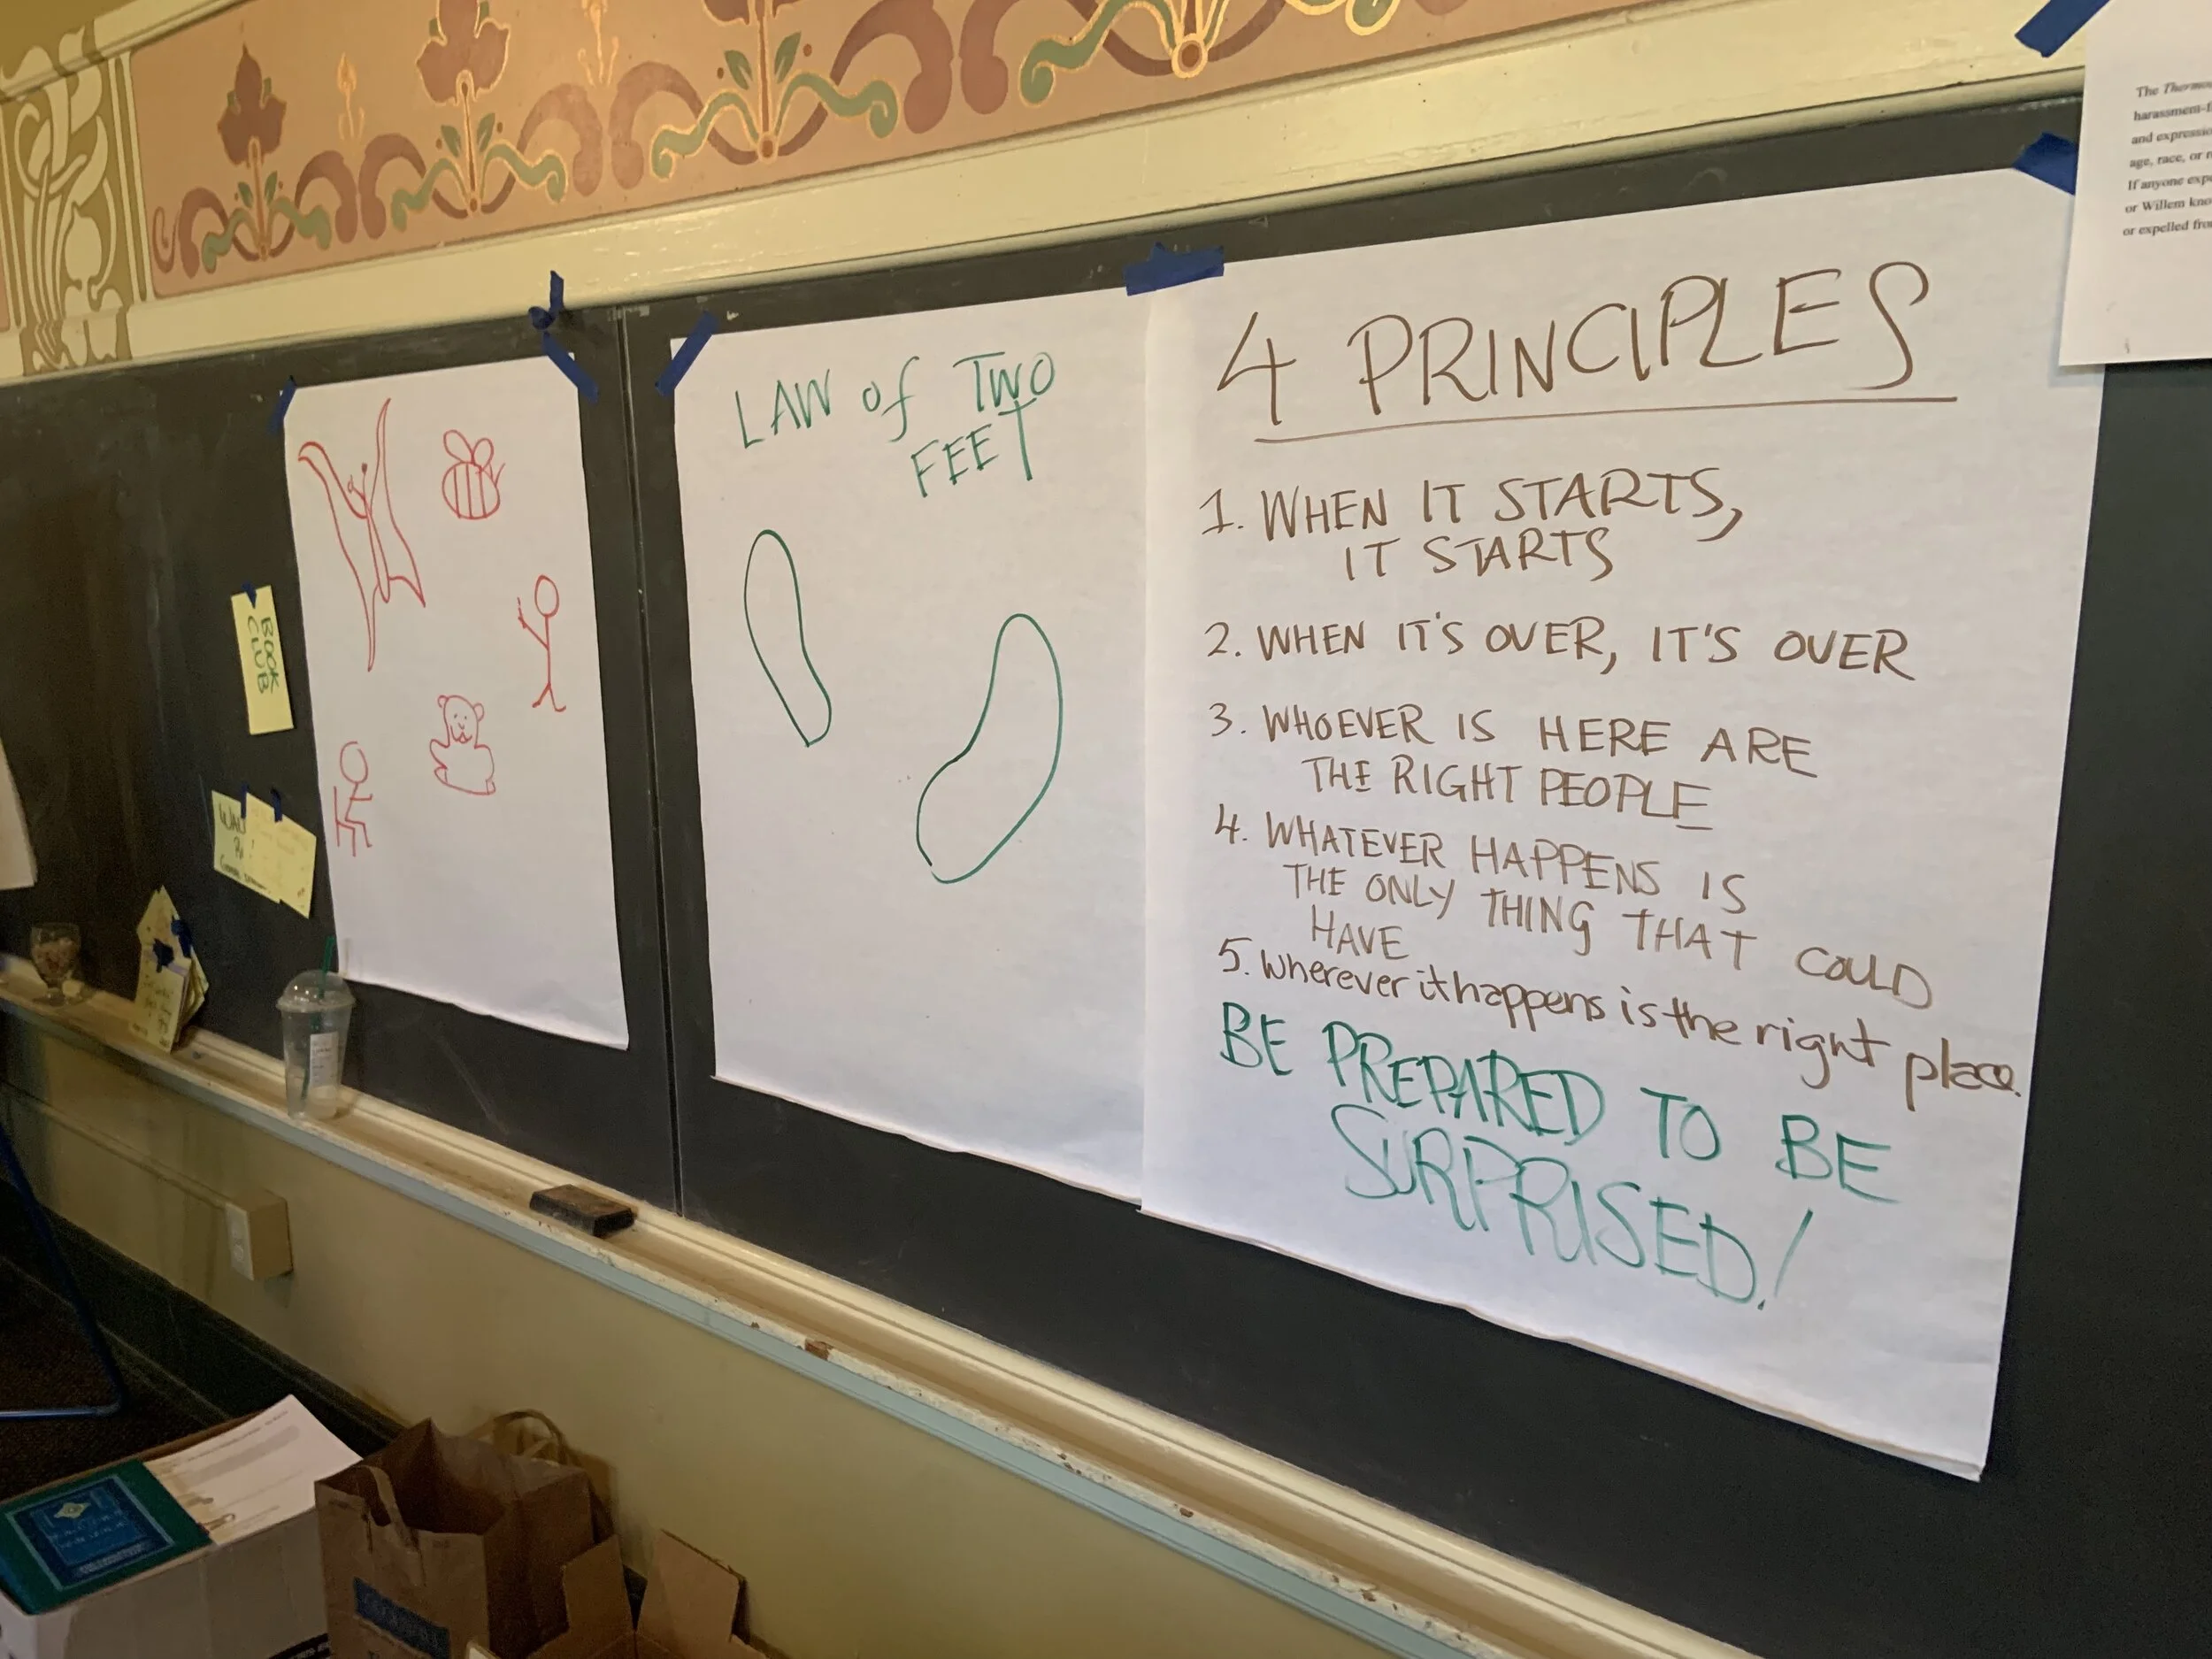 BOOK
CLUB
LAW of TWO
FEET
4 PRINCIPLES
1. WHEN IT STARTS,
IT STARTS
2. WHEN IT'S OVER, IT'S OVER
3. WHOEVER IS HERE ARE
THE RIGHT PEOPLE
4. WHATEVER HAPPENS IS
THE ONLY THING THAT COULD
HAVE
5. Wherever it happens is the right place.
BE PREPARED TO BE
SURPRISED!
The
harassment-f
and expressio
age, race, or r
If anyone expe
or Willem kno
or expelled fro